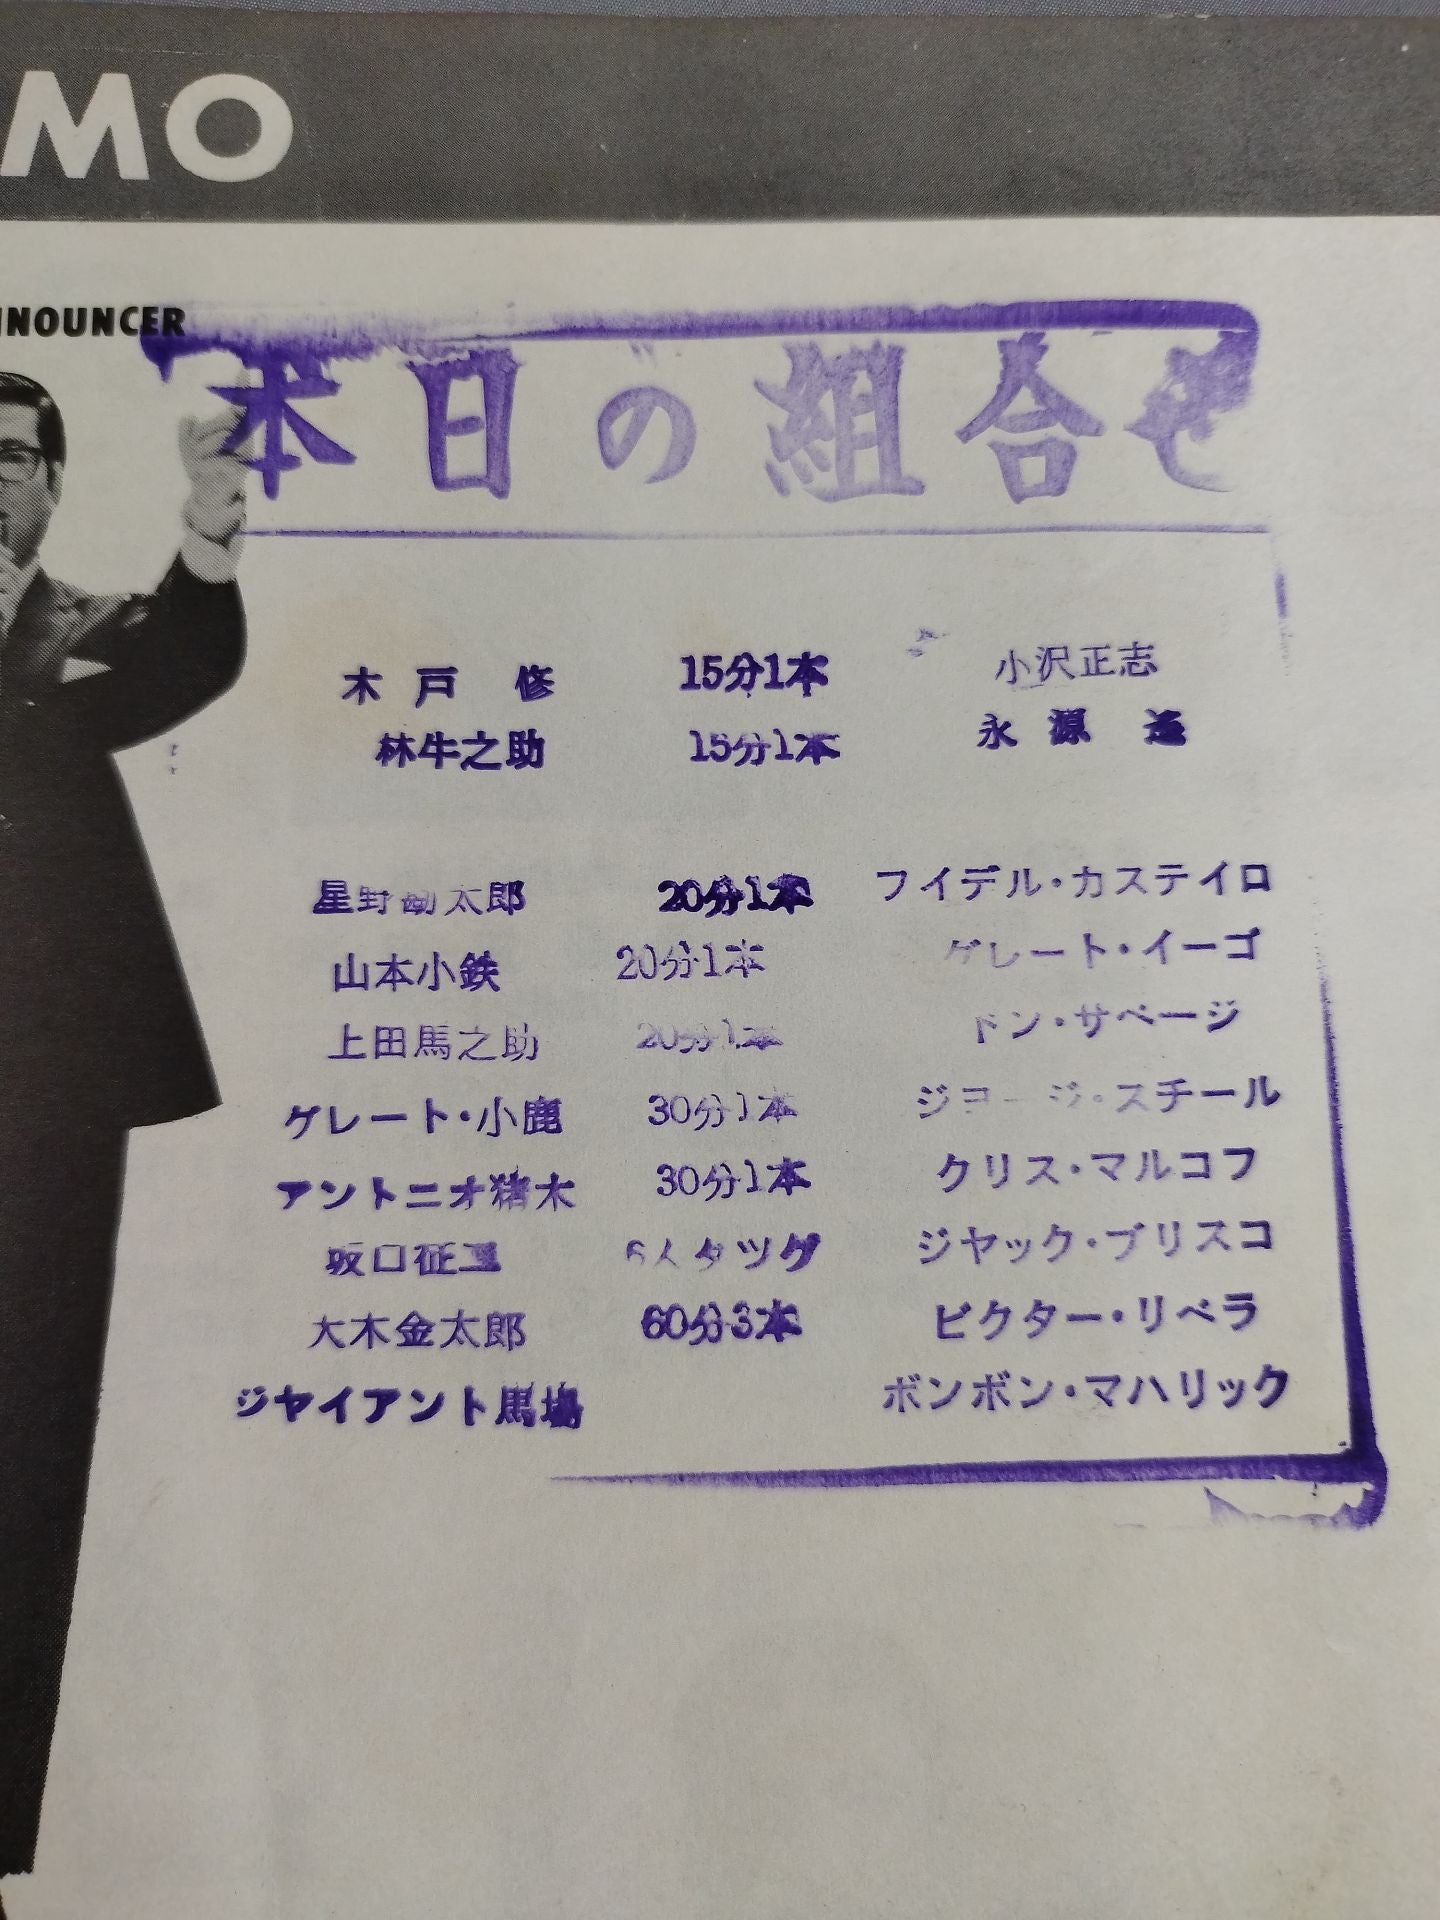 MO
NNOUNCER
本日の組合せ
木戸 修 15分1本 小沢正志
林牛之助 15分1本 永源 遥
星野勘太郎 20分1本 フイデル・カステイロ
山本小鉄 20分1本 グレート・イーゴ
上田馬之助 20分1本 ドン・サベージ
グレート・小鹿 30分1本 ジヨージ・スチール
アントニオ猪木 30分1本 クリス・マルコフ
坂口征二 6人タツグ ジヤック・ブリスコ
大木金太郎 60分3本 ビクター・リベラ
ジヤイアント馬場 ボンボン・マハリック